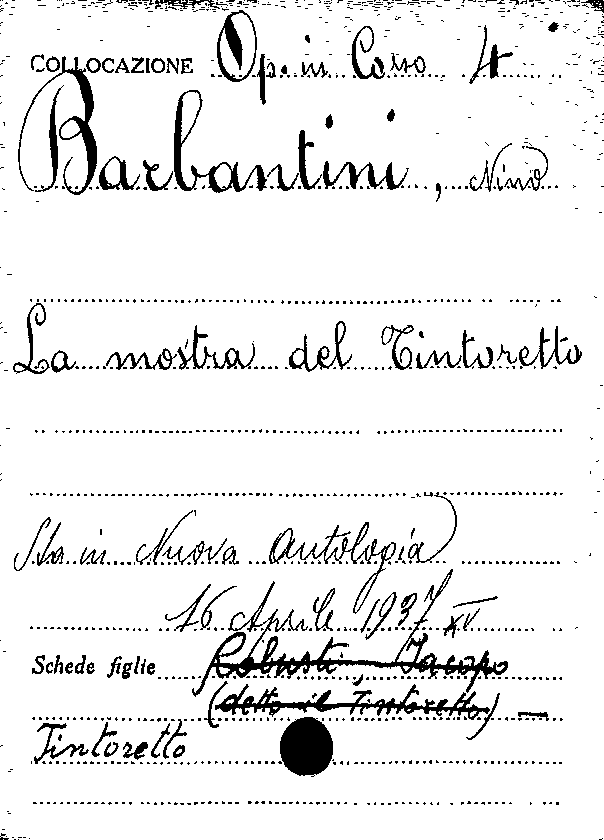 COLLOCAZIONE Op. in Corso 4
Barbantini, Nino
La mostra del Tintoretto
Sta in Nuova Antologia
16 Aprile 1937 XV
Schede figlie Robusti, Jacopo
(detto il Tintoretto) —
Tintoretto